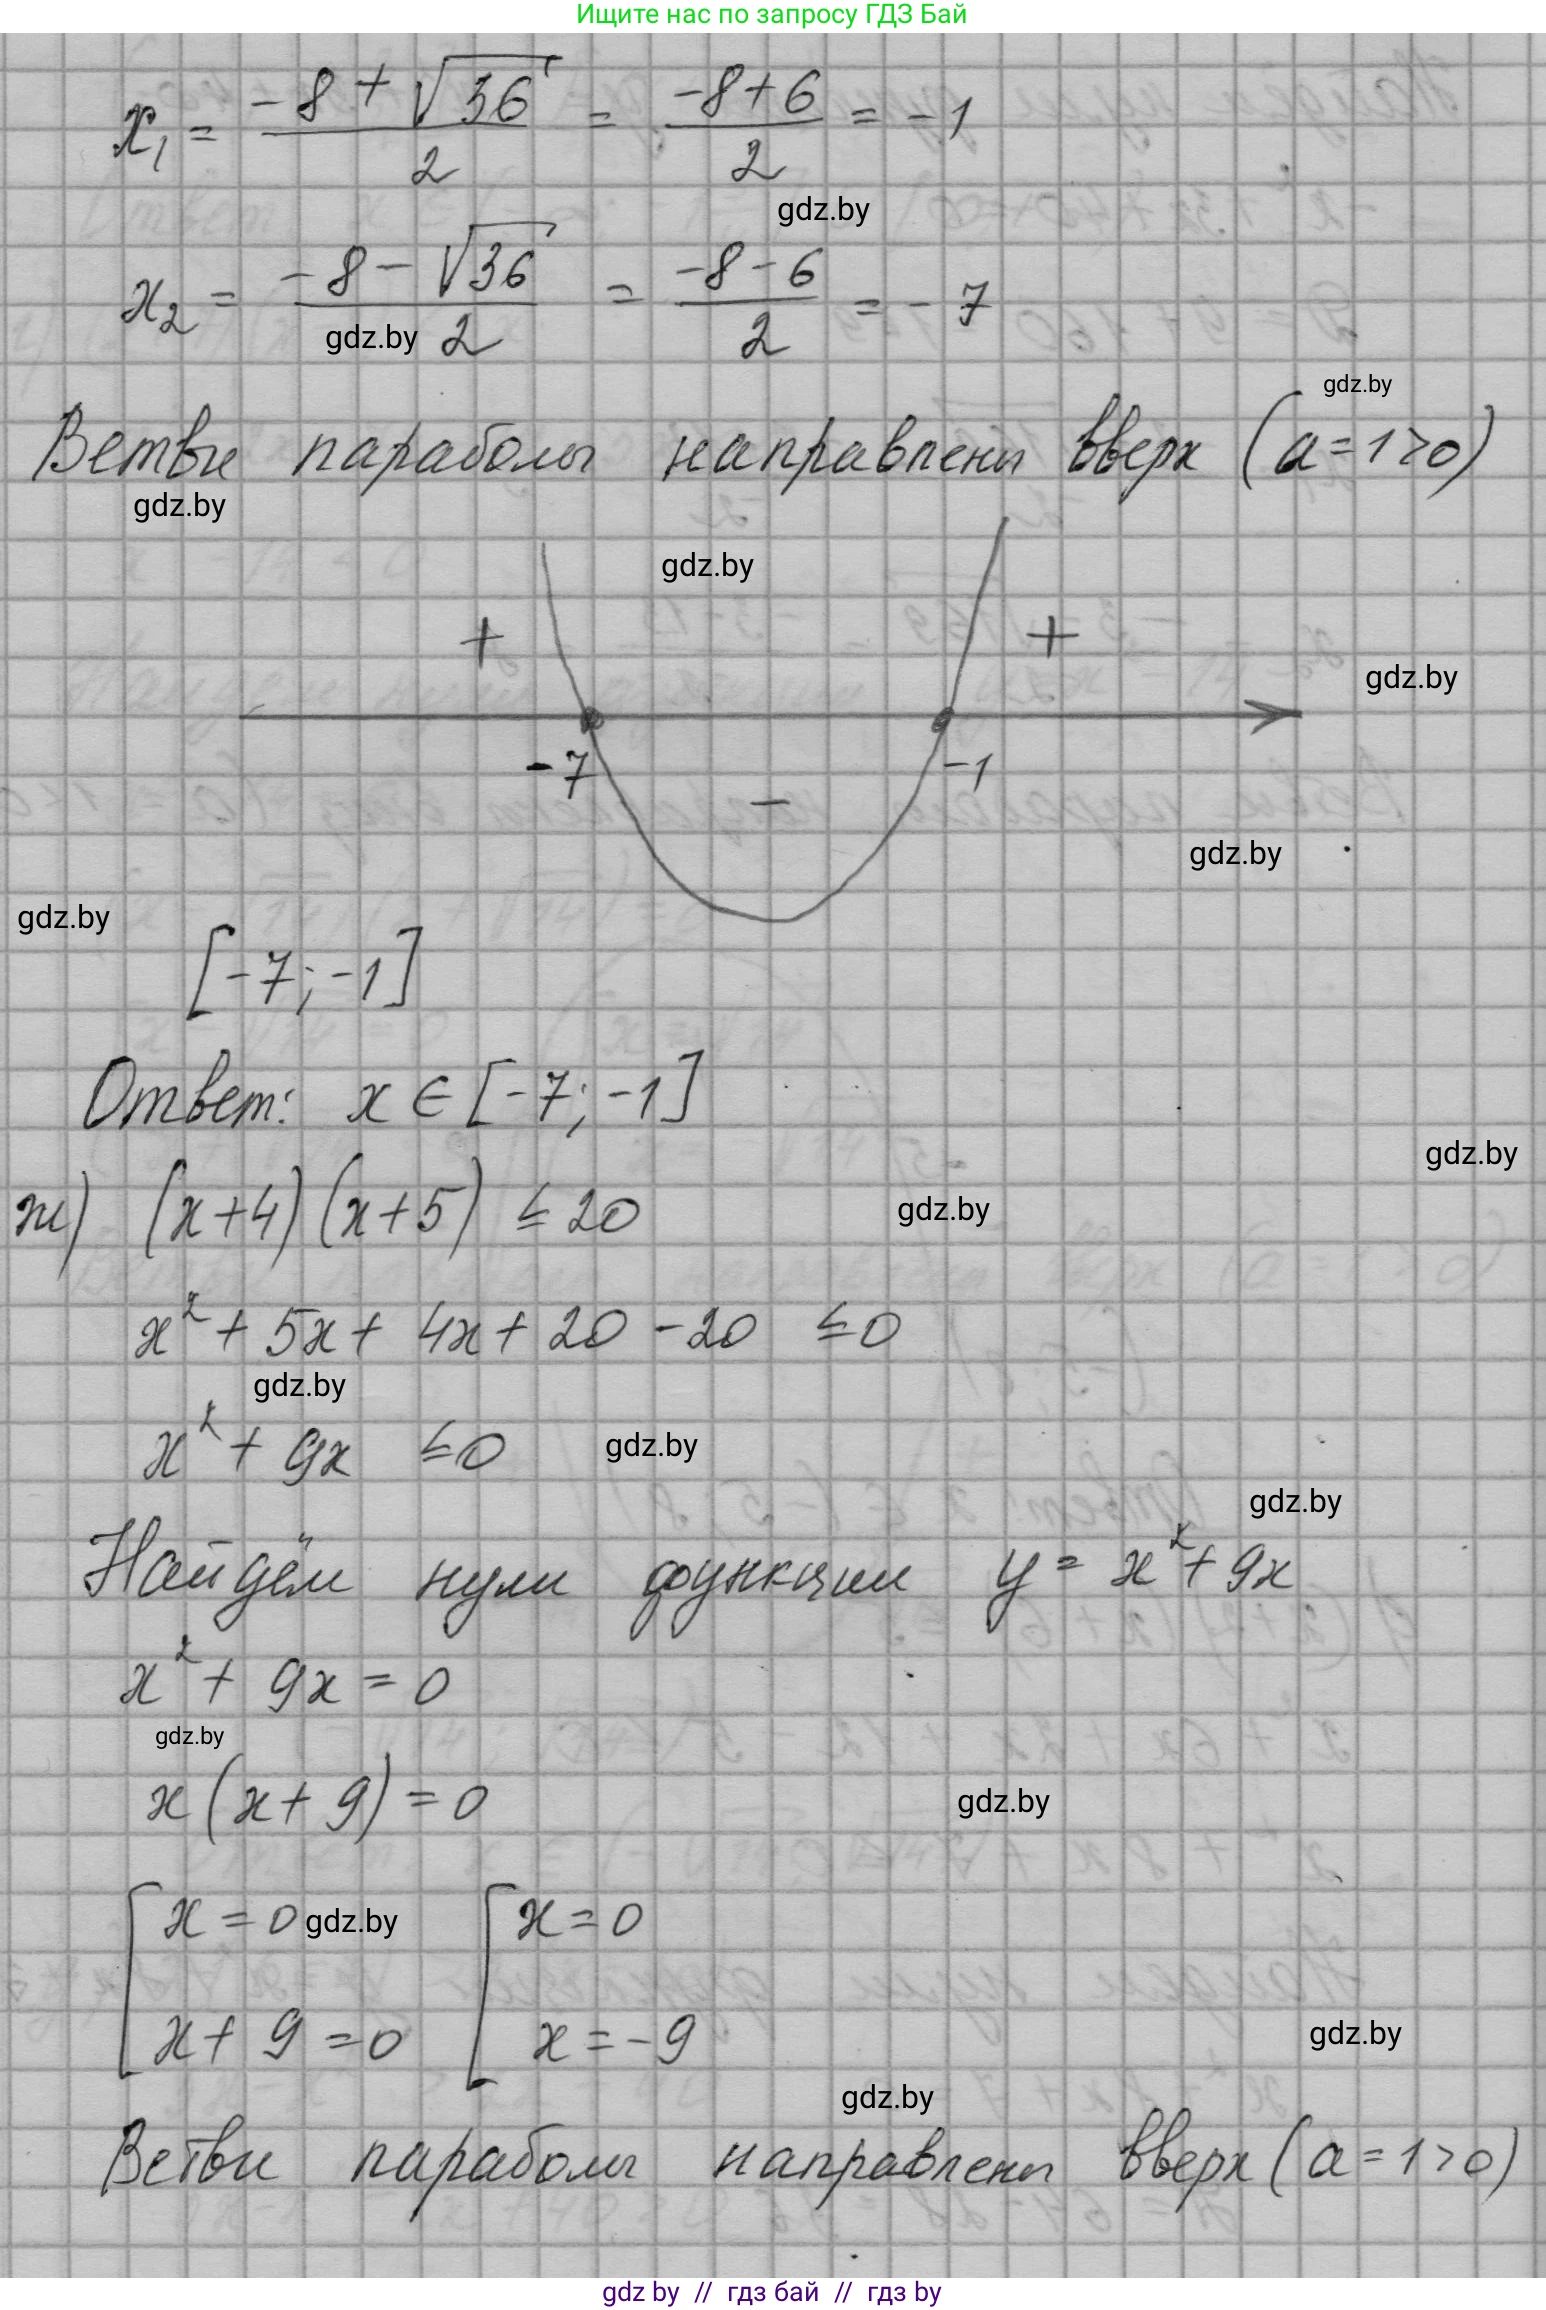 Ищите нас по запросу ГДЗ Бай
x₁ = (-8 + √36)/2 = (-8+6)/2 = -1
gdz.by
x₂ = (-8 - √36)/2 = (-8-6)/2 = -7
gdz.by
gdz.by
Ветви параболы направлены вверх (a=1>0)
gdz.by
gdz.by
+ +
gdz.by
-7 - -1
gdz.by
gdz.by
[-7; -1]
Ответ: x ∈ [-7; -1]
gdz.by
ж) (x+4)(x+5) ≤ 20
gdz.by
x² + 5x + 4x + 20 - 20 ≤ 0
gdz.by
x² + 9x ≤ 0
gdz.by
gdz.by
Найдём нули функции y = x² + 9x
x² + 9x = 0
gdz.by
x(x+9) = 0
gdz.by
[x = 0 [x = 0
gdz.by
x + 9 = 0 x = -9
gdz.by
gdz.by
Ветви параболы направлены вверх (a=1>0)
gdz by // гдз бай // гдз by